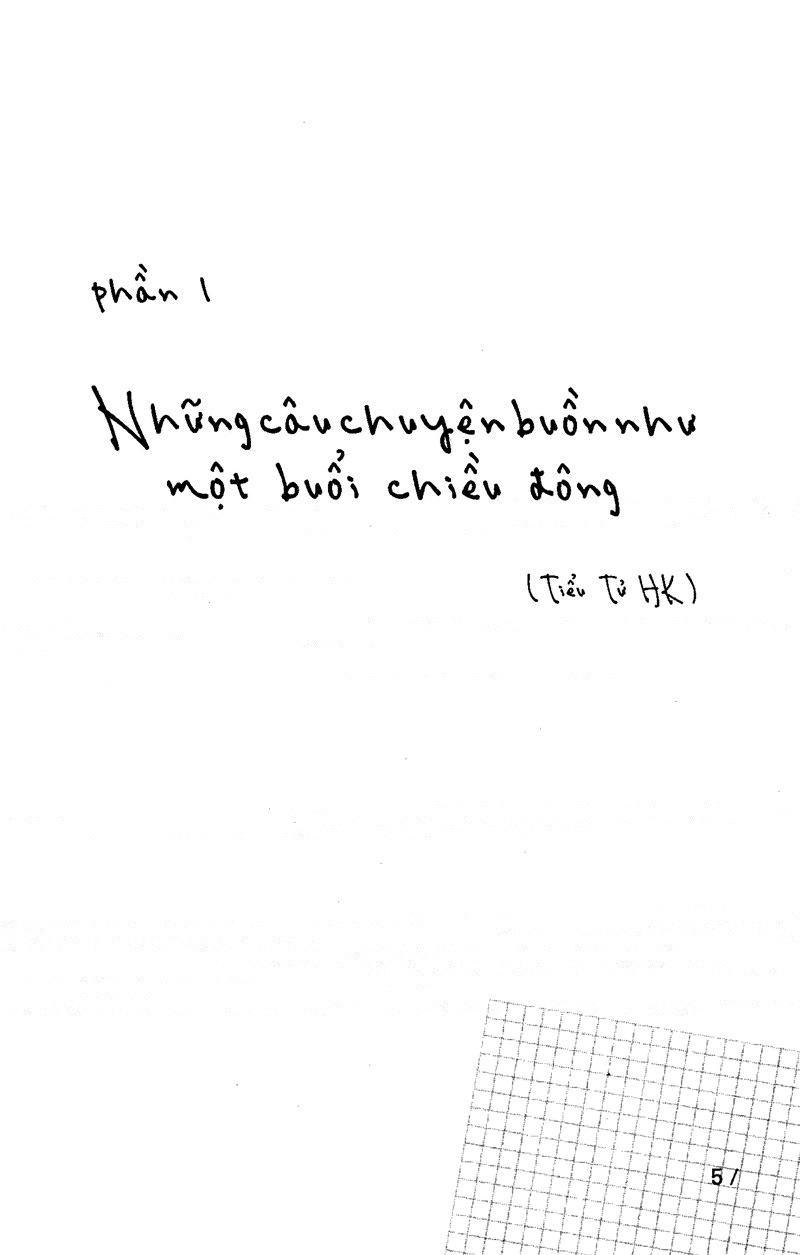 phần 1
Những câu chuyện buồn như
một buổi chiều đông
(Tiểu Tử HK)
5 /